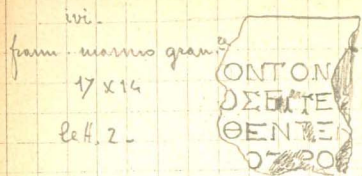 ivi.
fram. marmo gran.
17 x 14
lett. 2.
ΟΝΤΟΝ
ΟΣΕΠΤΕ
ΘΕΝΤΕΣ
ΡΟ